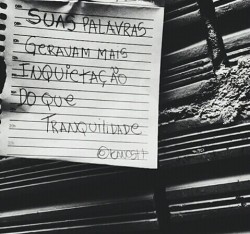 SUAS PALAVRAS
GERAVAM MAIS
INQUIETAÇÃO
DO QUE
TRANQUILIDADE